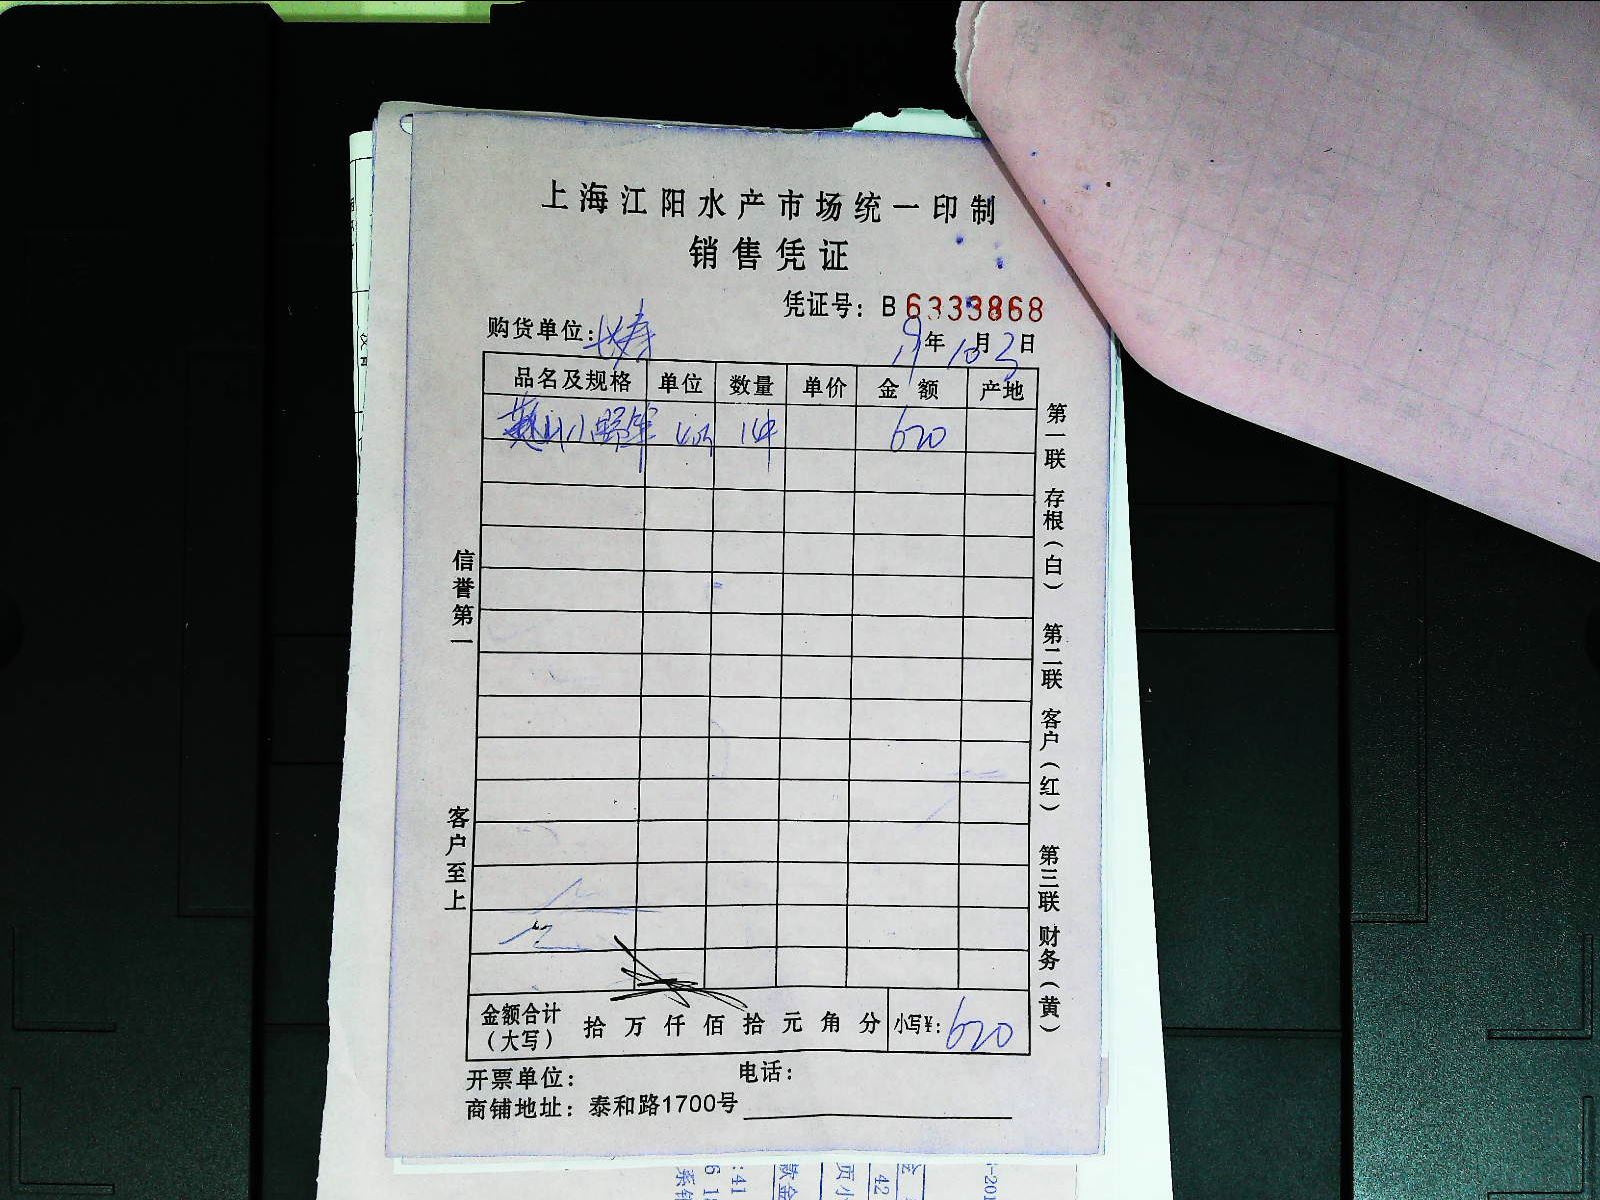 上海江阳水产市场统一印制
销售凭证
凭证号：B 6333868
购货单位：长寿
19年 10月 3日
品名及规格 单位 数量 单价 金额 产地
620
信誉第一
客户至上
第一联 存根（白） 第二联 客户（红） 第三联 财务（黄）
金额合计（大写） 拾 万 仟 佰 拾 元 角 分 小写¥：620
开票单位： 电话：
商铺地址：泰和路1700号
:41
款金
页小
42